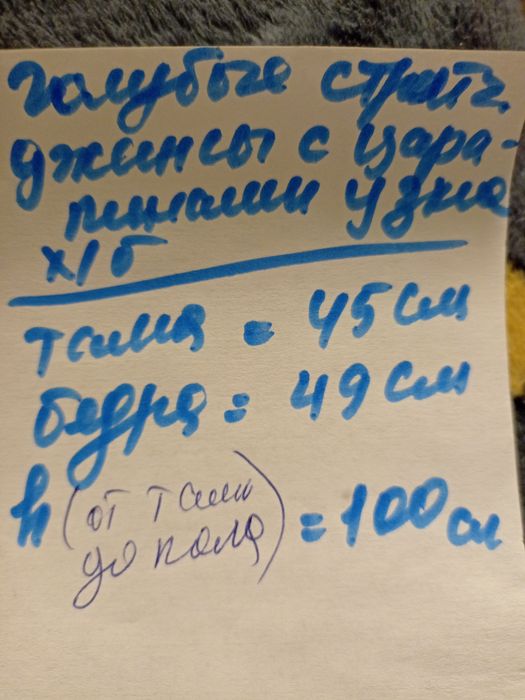 голубые стретч
джинсы с цара-
пинами узкие
х/б
талия = 45 см
бедра = 49 см
h (от талии
до пола) = 100 см